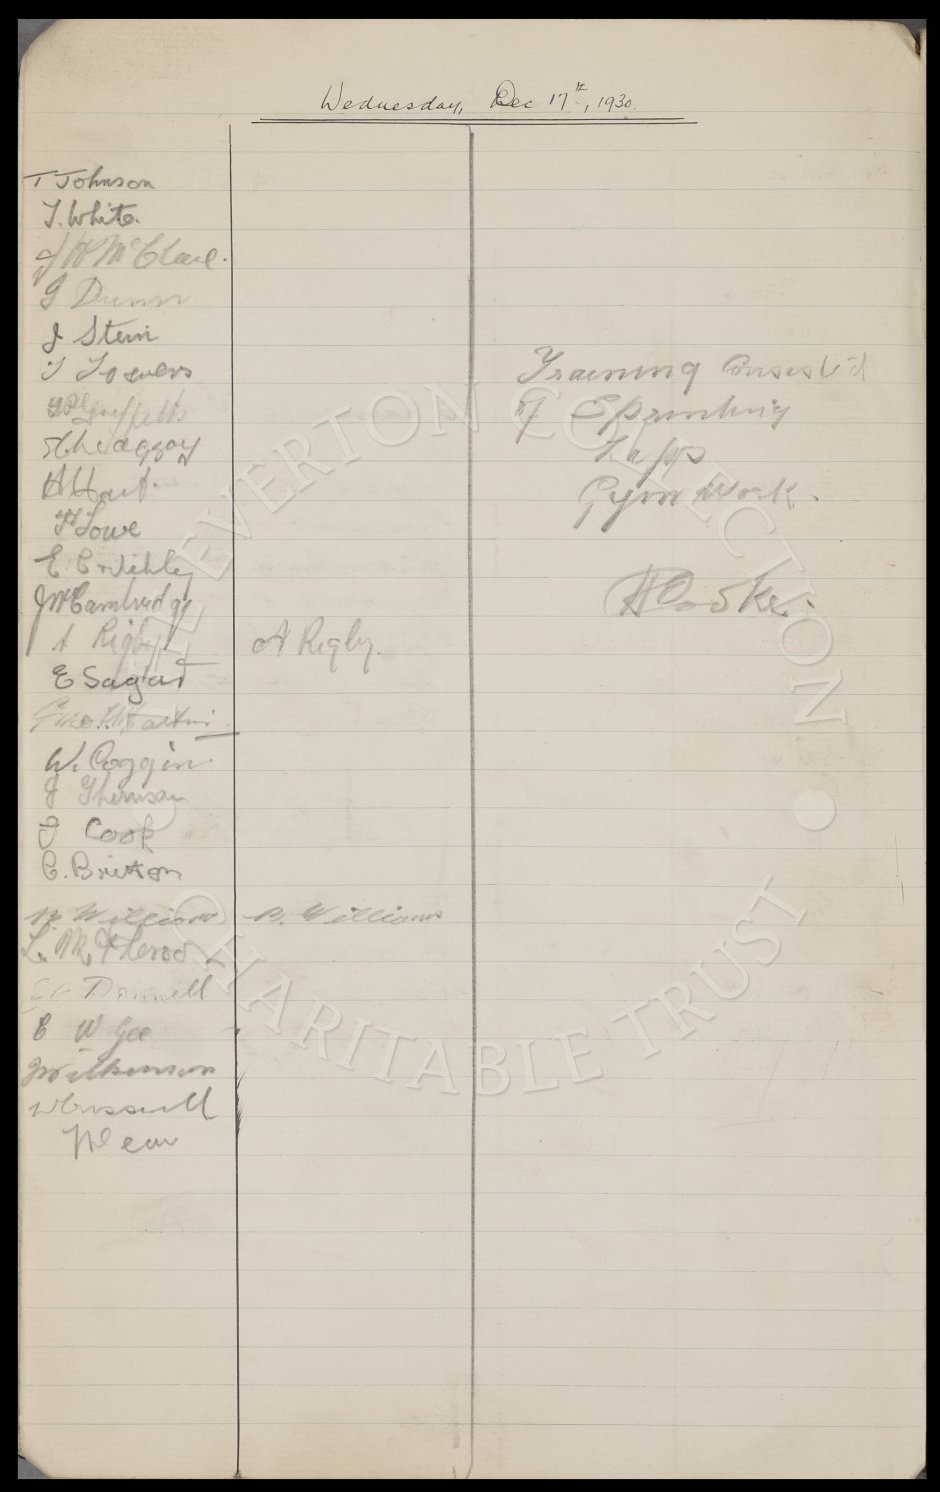 Wednesday, Dec 17th, 1930.
T Johnson
T. White.
J W McClure.
J Dunn
J Stein
T P Griffiths
S Chedgzoy
H Hart.
H Lowe
E Critchley
J McCambridge
A Rigby
A Rigby.
E Sagar
Geo H Martin
W. Coggin.
J Thomson
J Cook
C. Britton
B. Williams
B. Williams
Donnell
C W Gee
J Wilkinson
W Cresswell
W Dean
Training Consisted
of Sprinting
Lapps
Gym Work.
H Cooke.
THE EVERTON COLLECTION
CHARITABLE TRUST